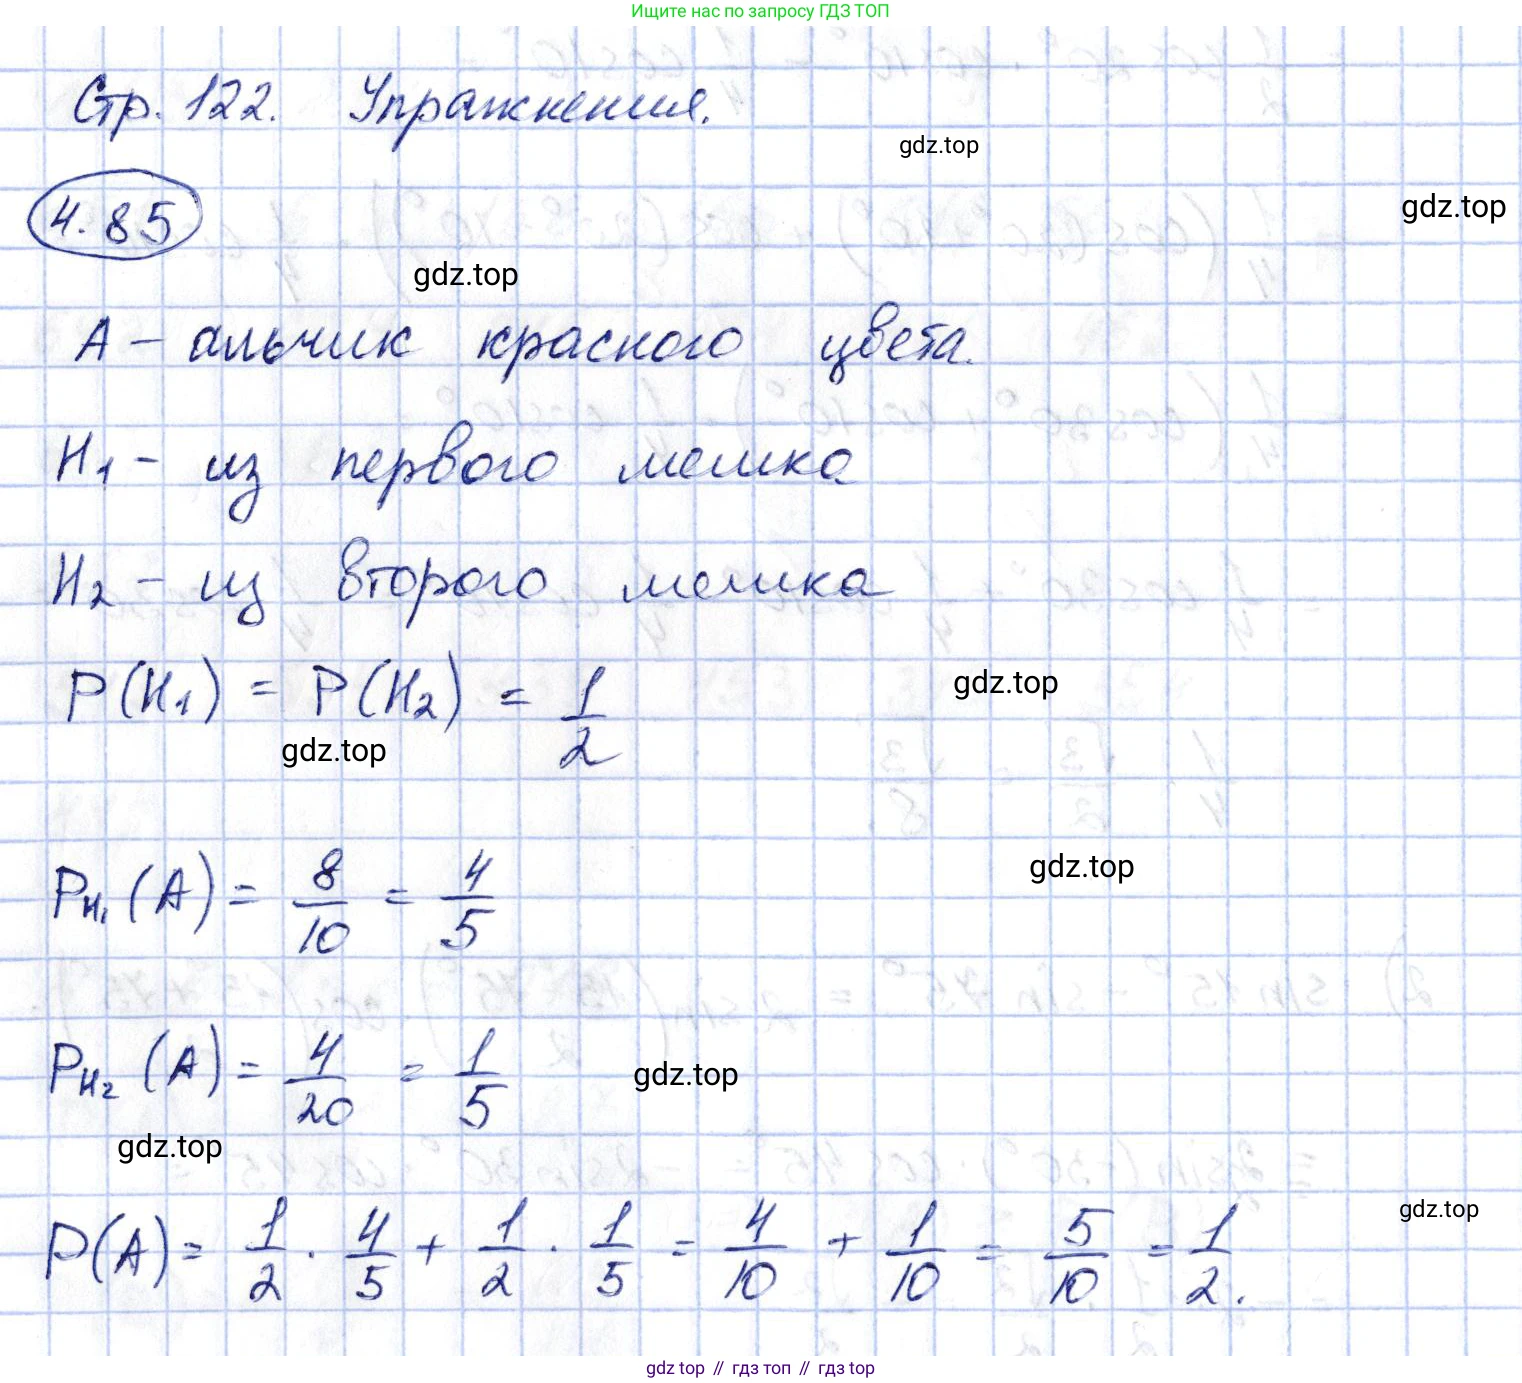 Ищите нас по запросу ГДЗ ТОП
Стр. 122. Упражнения.
gdz.top
4.85
gdz.top
gdz.top
А – альчик красного цвета.
H₁ – из первого мешка
H₂ – из второго мешка
P(H₁) = P(H₂) = 1/2
gdz.top
gdz.top
P_H₁(A) = 8/10 = 4/5
gdz.top
P_H₂(A) = 4/20 = 1/5
gdz.top
gdz.top
P(A) = 1/2 · 4/5 + 1/2 · 1/5 = 4/10 + 1/10 = 5/10 = 1/2.
gdz.top
gdz.top // гдз топ // гдз top